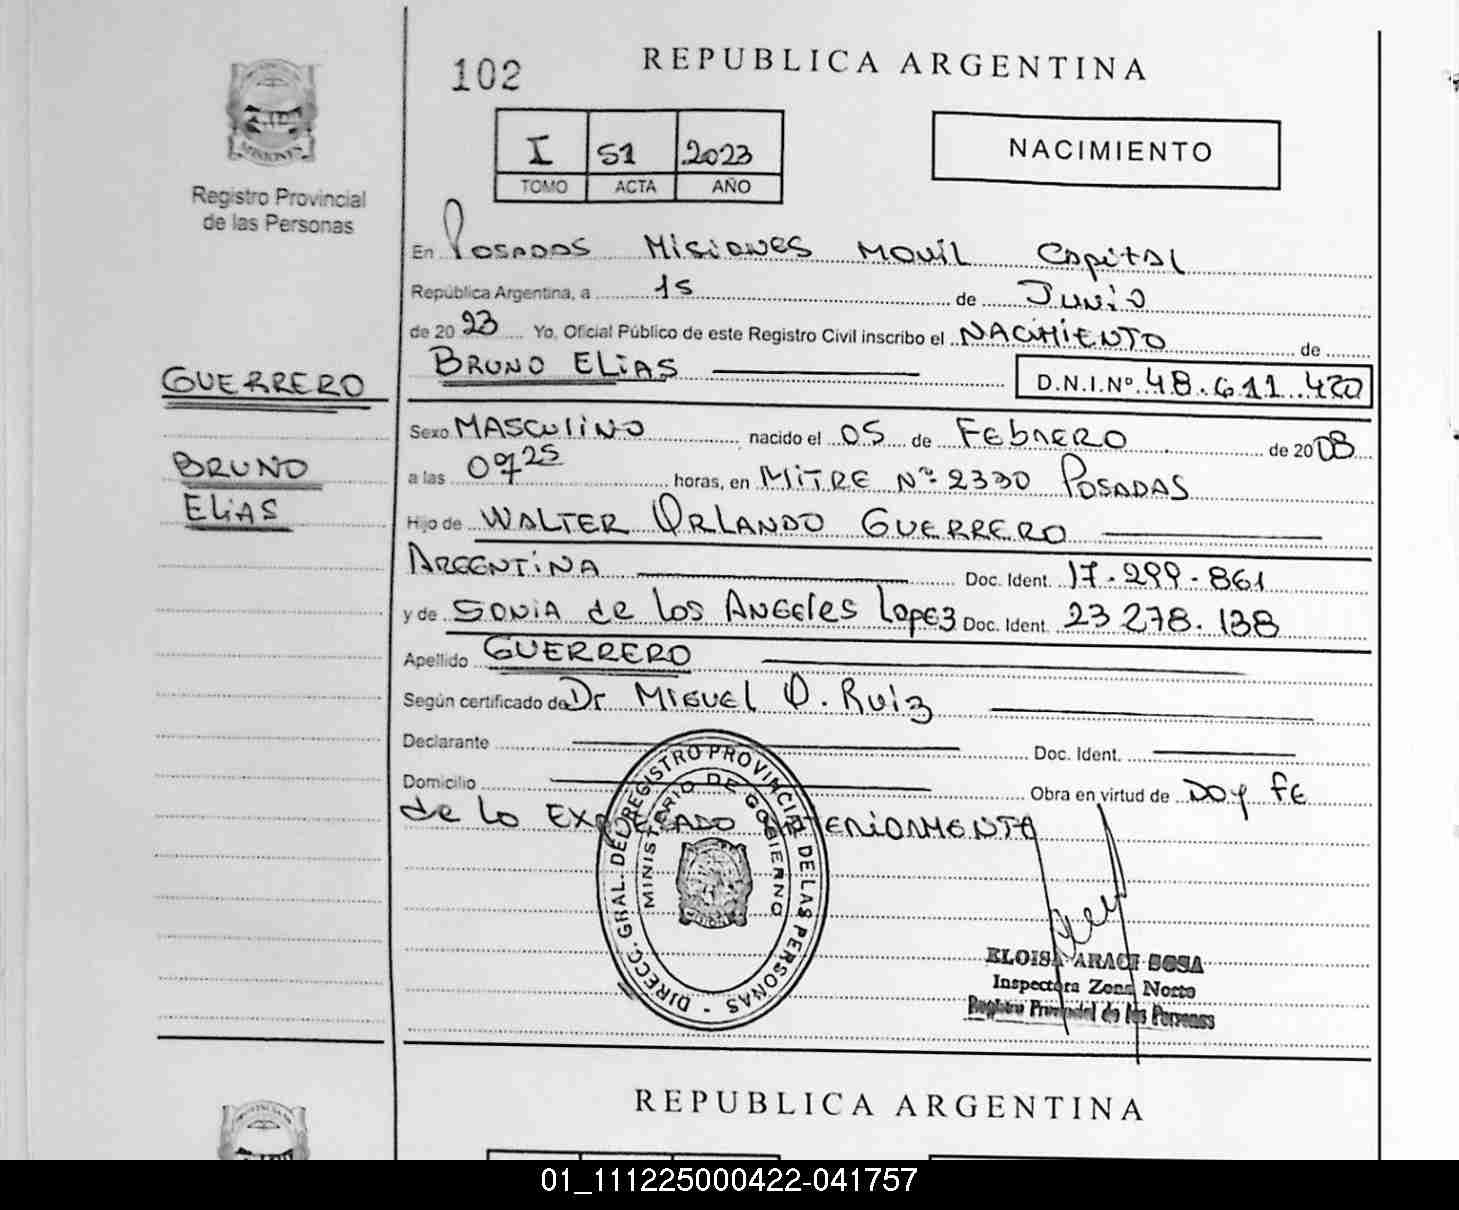 102
REPUBLICA ARGENTINA
MISIONES
Registro Provincial
de las Personas
I S1 2023
TOMO ACTA AÑO
NACIMIENTO
En Posadas Misiones Movil Capital
República Argentina, a 15 de Junio
de 20 23 Yo, Oficial Público de este Registro Civil inscribo el NACIMIENTO de
BRUNO ELIAS D.N.I.Nº 48.611.420
GUERRERO
BRUNO
ELIAS
Sexo MASCULINO nacido el 05 de Febrero de 2008
a las 0725 horas, en MITRE Nº 2330 POSADAS
Hijo de WALTER ORLANDO GUERRERO
ARGENTINA Doc. Ident. 17.299.861
y de SONIA de los ANGELES Lopez Doc. Ident. 23 278.138
Apellido GUERRERO
Según certificado de Dr MIGUEL O. Ruiz
Declarante Doc. Ident.
Domicilio Obra en virtud de DOY FE
de lo EXPRESADO ANTERIORMENTE
DIRECC. GRAL. DEL REGISTRO PROVINCIAL DE LAS PERSONAS -
MINISTERIO DE GOBIERNO
ELOISA ARACI SOSA
Inspectora Zona Norte
Registro Provincial de las Personas
REPUBLICA ARGENTINA
01_111225000422-041757